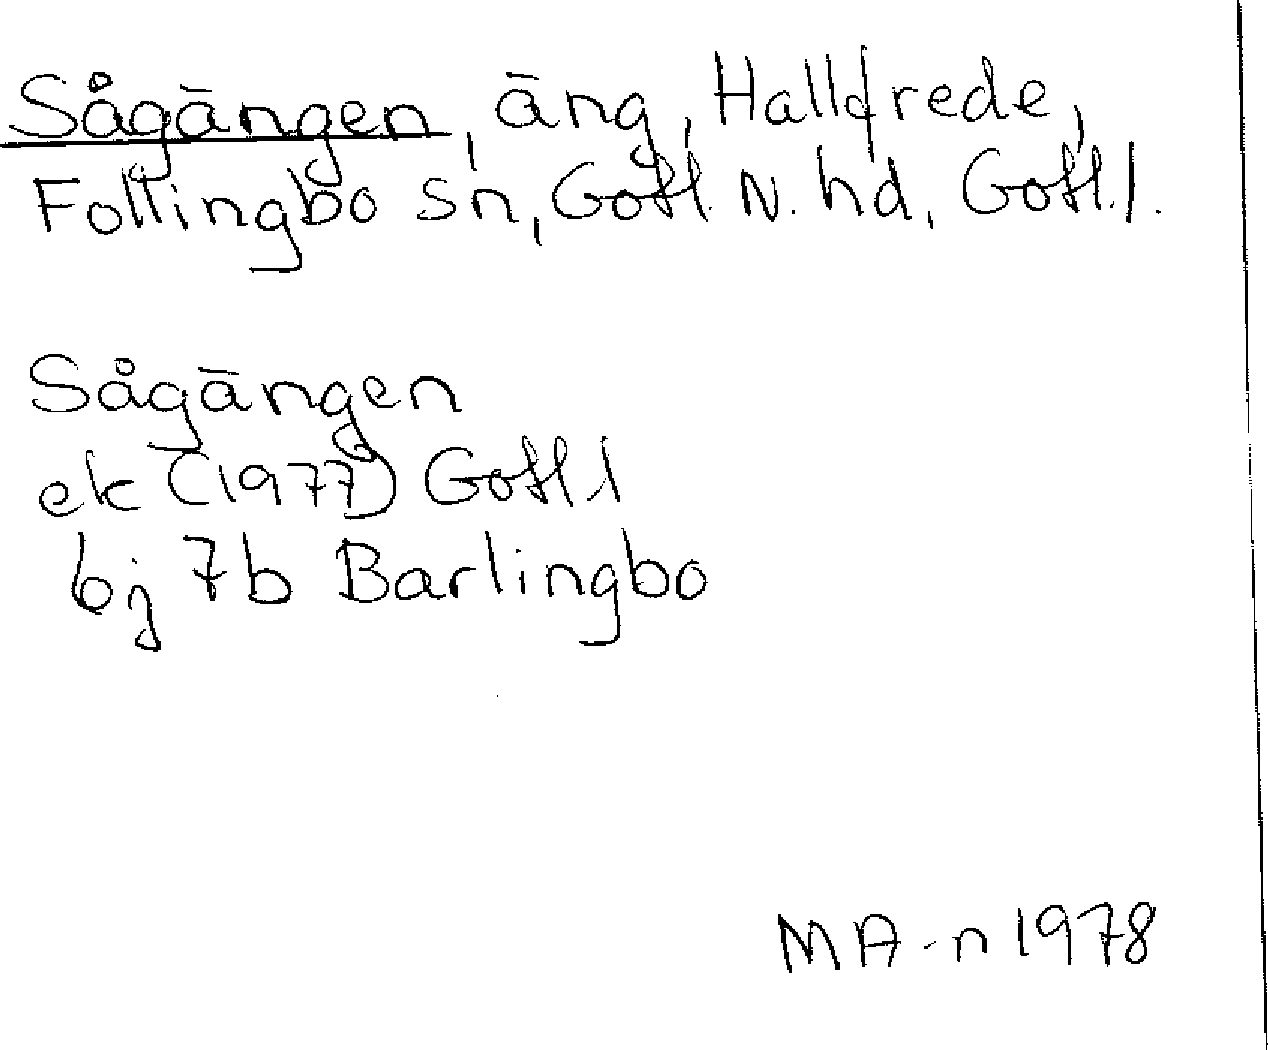 Sågängen, äng, Hallfrede,
Follingbo sn, Gotl. N. hd, Gotl. l.
Sågängen
ek (1977) Gotl l
bj 7b Barlingbo
MA-n 1978